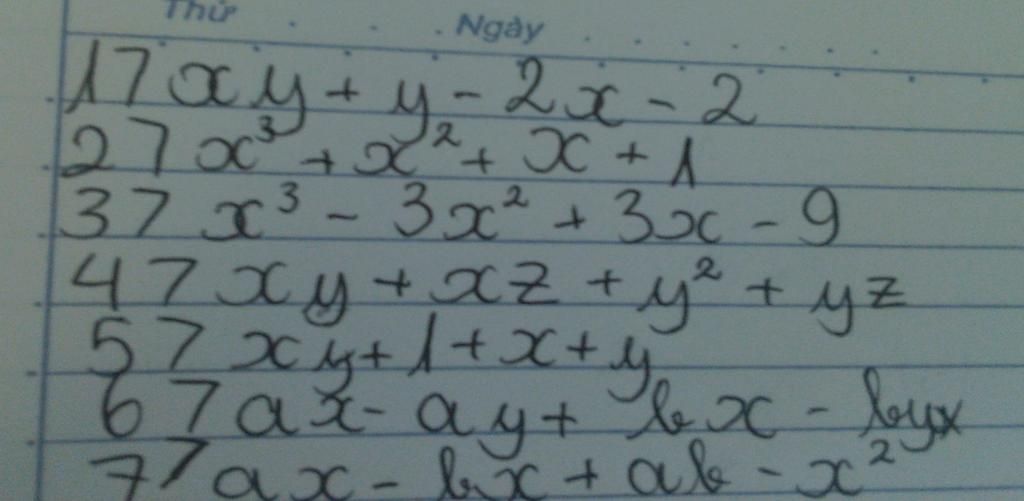 Thứ . . . Ngày . . . . . . . .
1> xy + y - 2x - 2
2> x³ + x² + x + 1
3> x³ - 3x² + 3x - 9
4> xy + xz + y² + yz
5> xy + 1 + x + y
6> ax - ay + bx - by
7> ax - bx + ab - x²